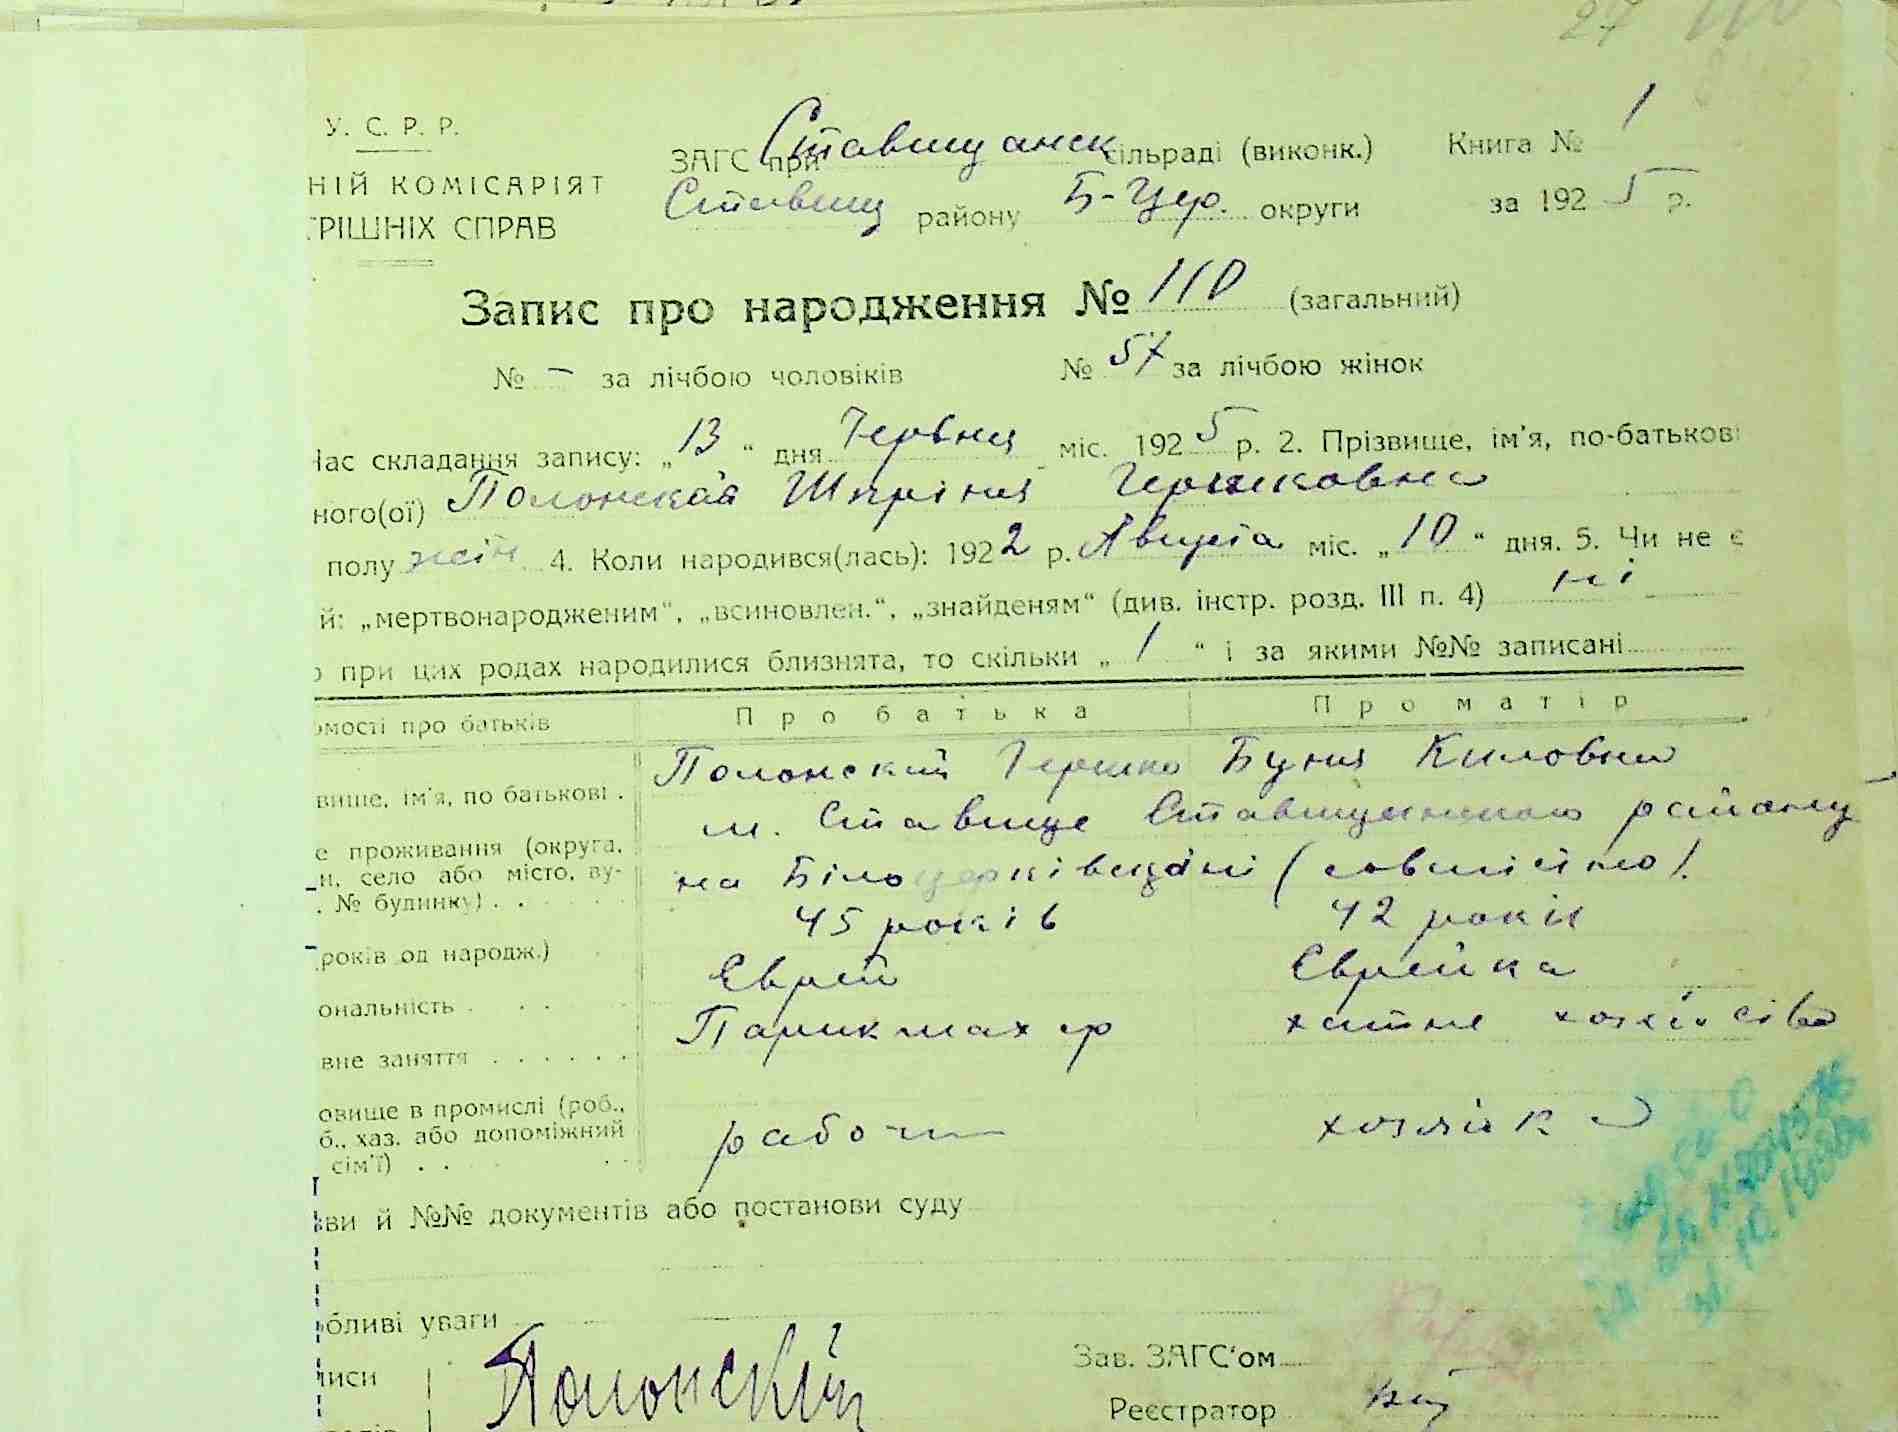 27 110
У. С. Р. Р.
НІЙ КОМІСАРІЯТ
ТРІШНІХ СПРАВ
ЗАГС при Ставищанск сільраді (виконк.) Книга № 1
Ставищ району Б-Цер. округи за 1925 р.
Запис про народження № 110 (загальний)
№ – за лічбою чоловіків № 57 за лічбою жінок
Час складання запису: „13“ дня Червня міс. 1925 р. 2. Прізвище, ім'я, по-батькові
ного(ої) Полонская Шпрінця Гершковна
полу жін. 4. Коли народився(лась): 1922 р. Августа міс. „10“ дня. 5. Чи не є
й: „мертвонародженим“, „всиновлен.“, „знайденям“ (див. інстр. розд. III п. 4) ні
о при цих родах народилися близнята, то скільки „1“ і за якими №№ записані
омості про батьків Про батька Про матір
вище, ім'я, по батькові . Полонский Гершко Буня Киловна
е проживання (округа, м. Ставище Ставищанского району
н, село або місто, ву- на Білоцерківщані (совмісно).
. № будинку) . . 
років од народж.) 45 років 42 років
ональність . . . Єврей Єврейка
вне заняття . . . . . . Парикмахер хатне хозяйство
овище в промислі (роб.,
б., хаз. або допоміжний рабочи хозяйка
сім'ї) . .
ви й №№ документів або постанови суду
бливі уваги
писи Полонский
Зав. ЗАГС'ом
Реєстратор